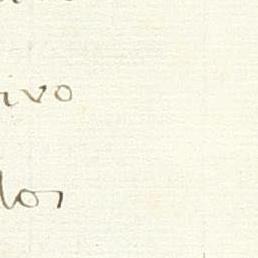 ivo
los